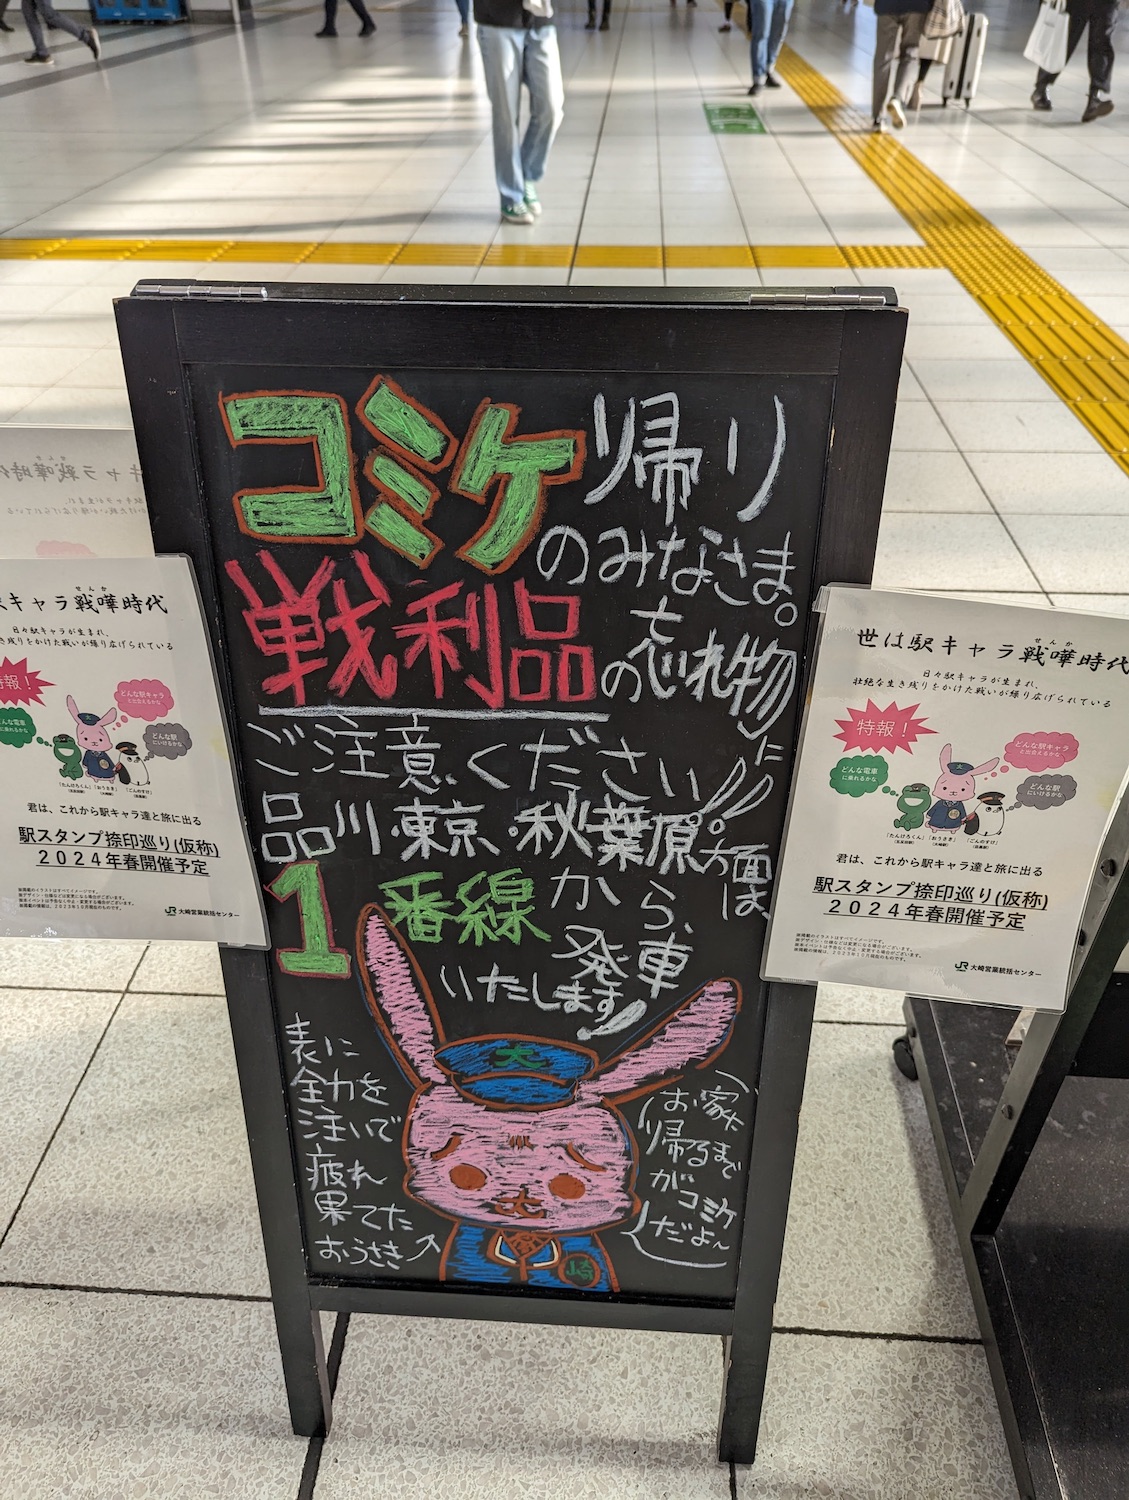 コミケ帰り
のみなさま。
戦利品の忘れ物に
ご注意ください!!
品川・東京・秋葉原方面は
1番線から、
発車
いたします!
表に
全力を
注いで
疲れ
果てた
おうさき
お家に
帰るまで
がコミケ
だよ〜
大
崎
キャラ戦嘩時代
せんか
日々駅キャラが生まれ、
き残りをかけた戦いが繰り広げられている
特報!
どんな駅キャラ
と出会えるかな
どんな電車
に乗れるかな
どんな駅
にいけるかな
「たんけろくん」「おうさき」「ごんのすけ」
君は、これから駅キャラ達と旅に出る
駅スタンプ捺印巡り(仮称)
2024年春開催予定
JR 大崎営業統括センター
世は駅キャラ戦嘩時代
せんか
日々駅キャラが生まれ、
壮絶な生き残りをかけた戦いが繰り広げられている
特報!
どんな駅キャラ
と出会えるかな
どんな電車
に乗れるかな
どんな駅
にいけるかな
「たんけろくん」「おうさき」「ごんのすけ」
君は、これから駅キャラ達と旅に出る
駅スタンプ捺印巡り(仮称)
2024年春開催予定
※掲載のイラストはすべてイメージです。
JR 大崎営業統括センター